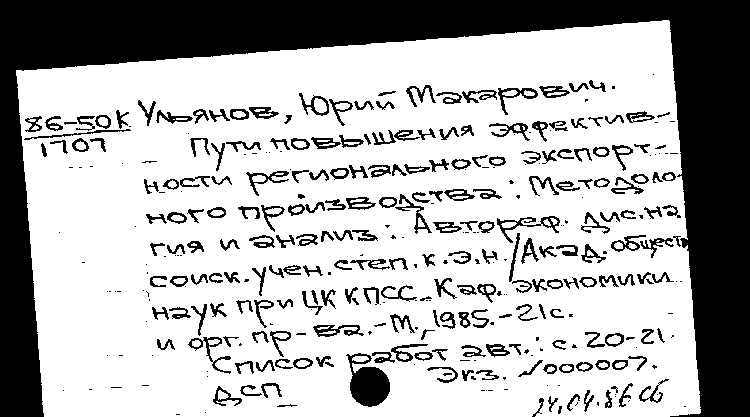 86-50К Ульянов, Юрий Макарович.
1707 Пути повышения эффектив-
ности регионального экспорт-
ного производства: Методоло-
гия и анализ: Автореф. дис. на
соиск. учен. степ. к.э.н. /Акад. обществ.
наук при ЦК КПСС. Каф. экономики
и орг. пр-ва. -М., 1985. -21с.
Список работ авт.: с. 20-21.
Экз. №000007.
ДСП
24.04.86 сб